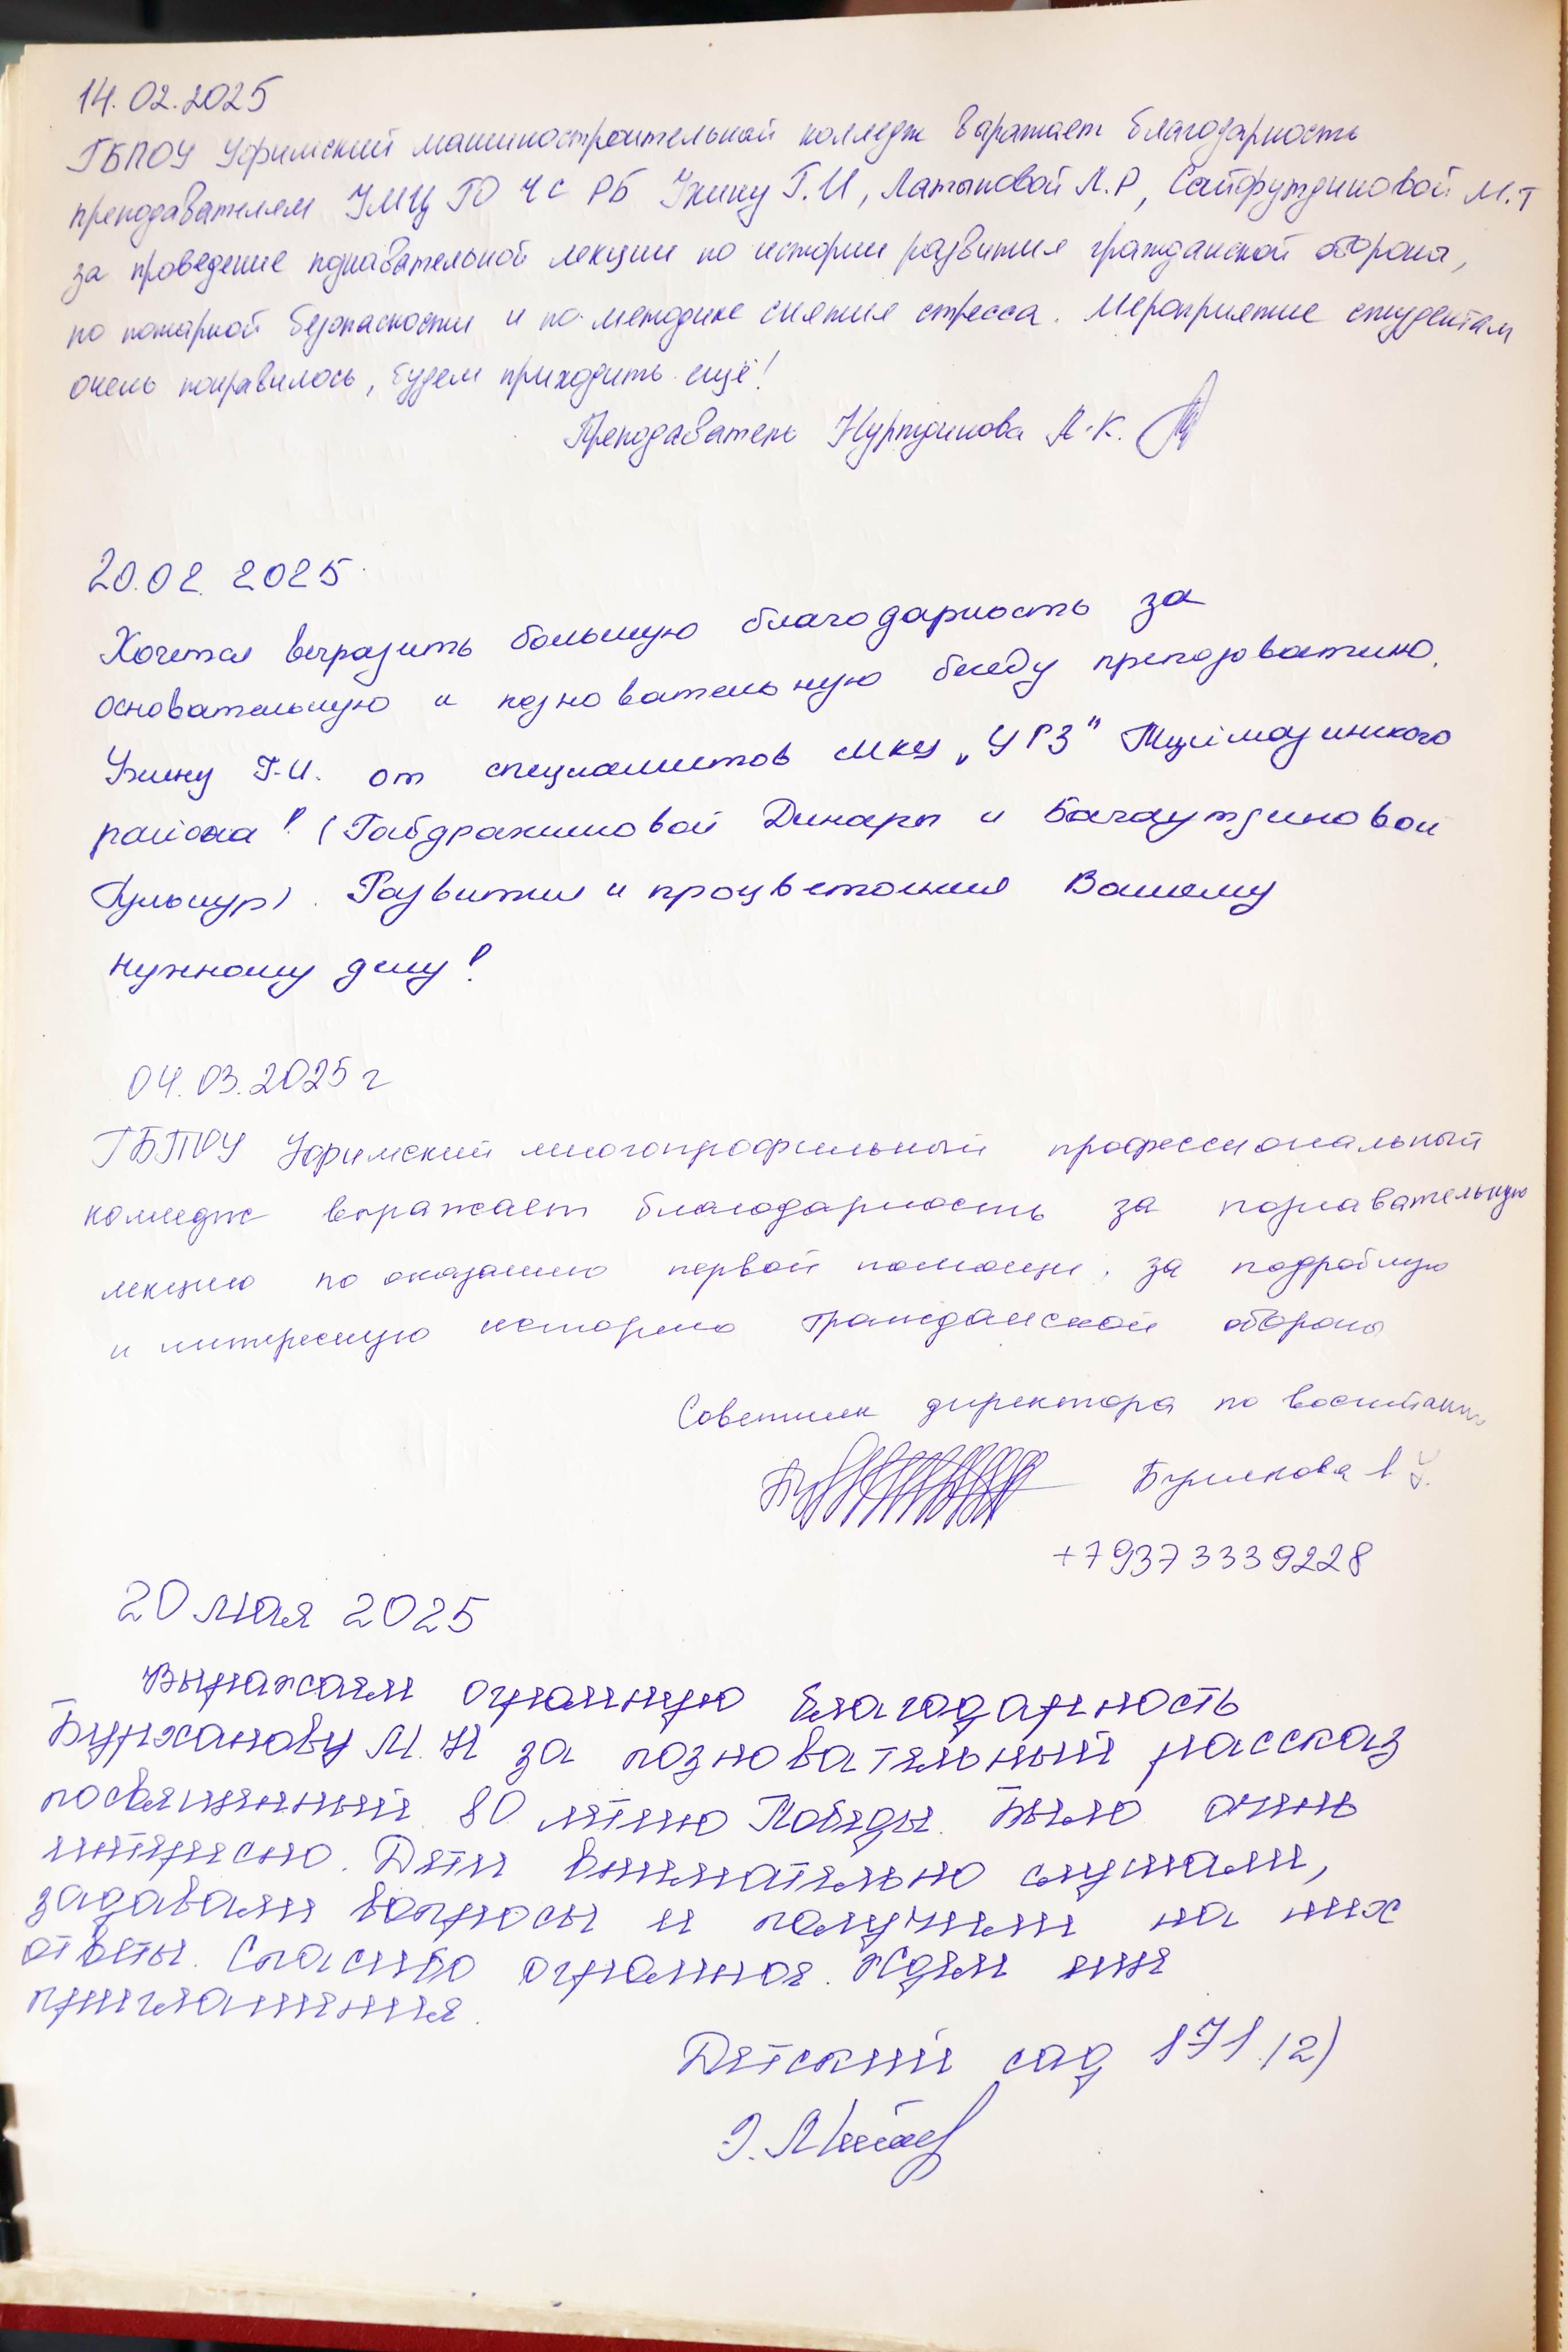 14.02.2025
ГБПОУ Уфимский машиностроительный колледж выражает благодарность
преподавателям УМЦ ГО ЧС РБ Укину Г.И, Латыповой Л.Р, Сайфутдиновой М.Т
за проведение познавательной лекции по истории развития гражданской обороны,
по пожарной безопасности и по методике снятия стресса. Мероприятие студентам
очень понравилось, будем приходить ещё!
Преподаватель Нуртдинова А.К.
20.02.2025
Хочется выразить большую благодарность за
основательную и познавательную беседу преподователю
Укину Г.И. от специалистов МКУ „УГЗ" Туймазинского
района! (Габдрахимовой Динары и Багаутдиновой
Гульнур). Развития и процветания Вашему
нужному делу!
04.03.2025 г
ГБПОУ Уфимский многопрофильный профессиональный
колледж выражает благодарность за познавательную
лекцию по оказанию первой помощи, за подробную
и интересную историю гражданской обороны
Советник директора по воспитанию
+79373339228
20 мая 2025
Выражаем огромную благодарность
Бурханову М.Н за позновательный рассказ
посвященный 80 летию Победы. Было очень
интересно. Дети внимательно слушали,
задавали вопросы и получили на них
ответы. Спасибо огромное. Ждем еще
приглашения.
Детский сад 171 (2)